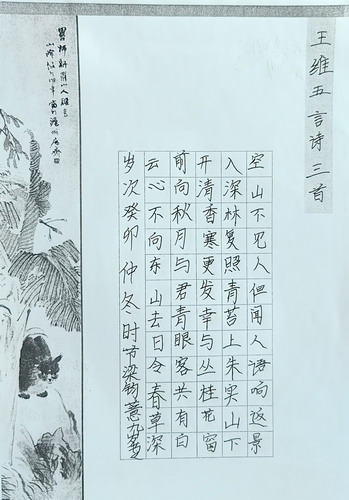 王维五言诗三首
空山不见人但闻人语响返景
入深林复照青苔上朱实山下
开清香寒更发幸与丛桂花窗
前向秋月与君青眼客共有白
云心不向东山去日令春草深
岁次癸卯仲冬时节梁钧薏九岁
师新罗山人